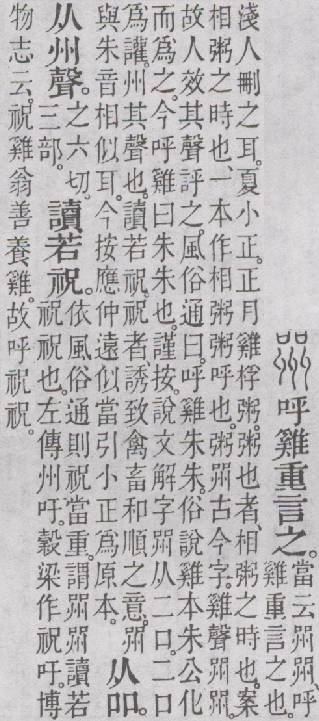 喌 呼雞重言之。當云喌喌、呼
雞重言之也。
淺人刪之耳。夏小正。正月雞桴粥。粥也者、相粥之時也。案
相粥之時也。一本作相粥粥呼也。粥喌古今字。雞聲喌喌、
故人效其聲評之。風俗通曰。呼雞朱朱。俗說雞本朱公化
而爲之。今呼雞曰朱朱也。謹按說文解字喌从二口。二口
爲讙。州其聲也。讀若祝。祝者誘致禽畜和順之意。喌
與朱音相似耳。今按應仲遠似當引小正爲原本。从吅。
从州聲。之六切。
三部。讀若祝。依風俗通則祝當重。謂喌喌讀若
祝祝也。左傳州吁。穀梁作祝吁。博
物志云。祝雞翁善養雞。故呼祝祝。